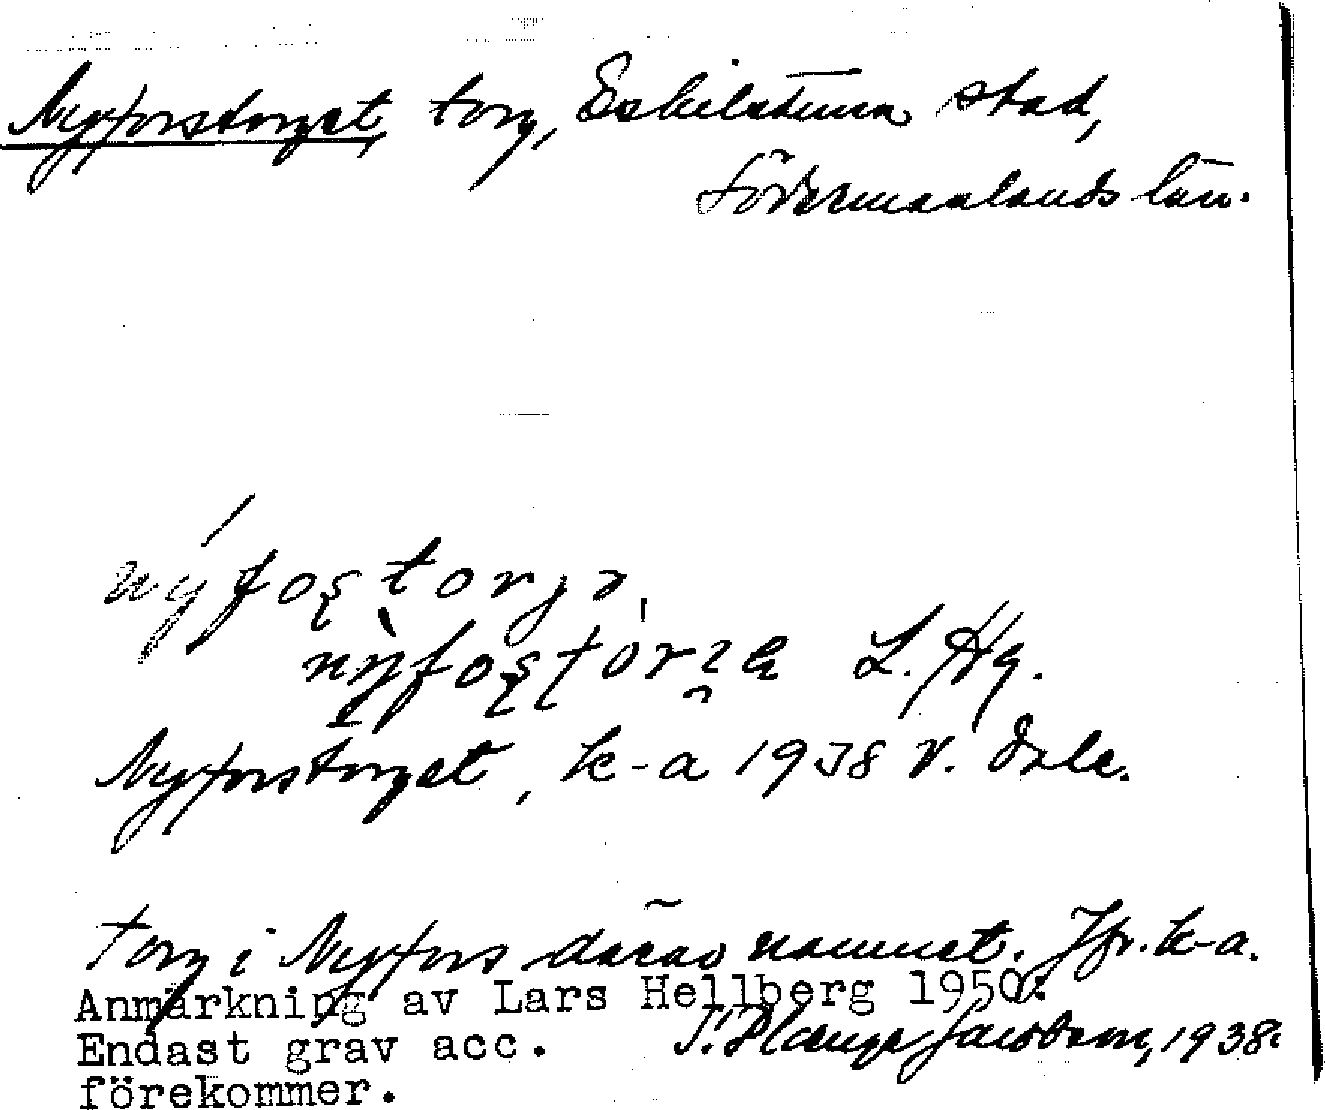 Nyforstorget, torg, Eskilstuna stad,
Södermanlands län.
L. Hg.
Nyforstorget, k-a 1938 V. drle.
Torg i Nyfors därav namnet. Jfr. k-a.
Anmärkning av Lars Hellberg 1950.
Endast grav acc.
1938.
förekommer.